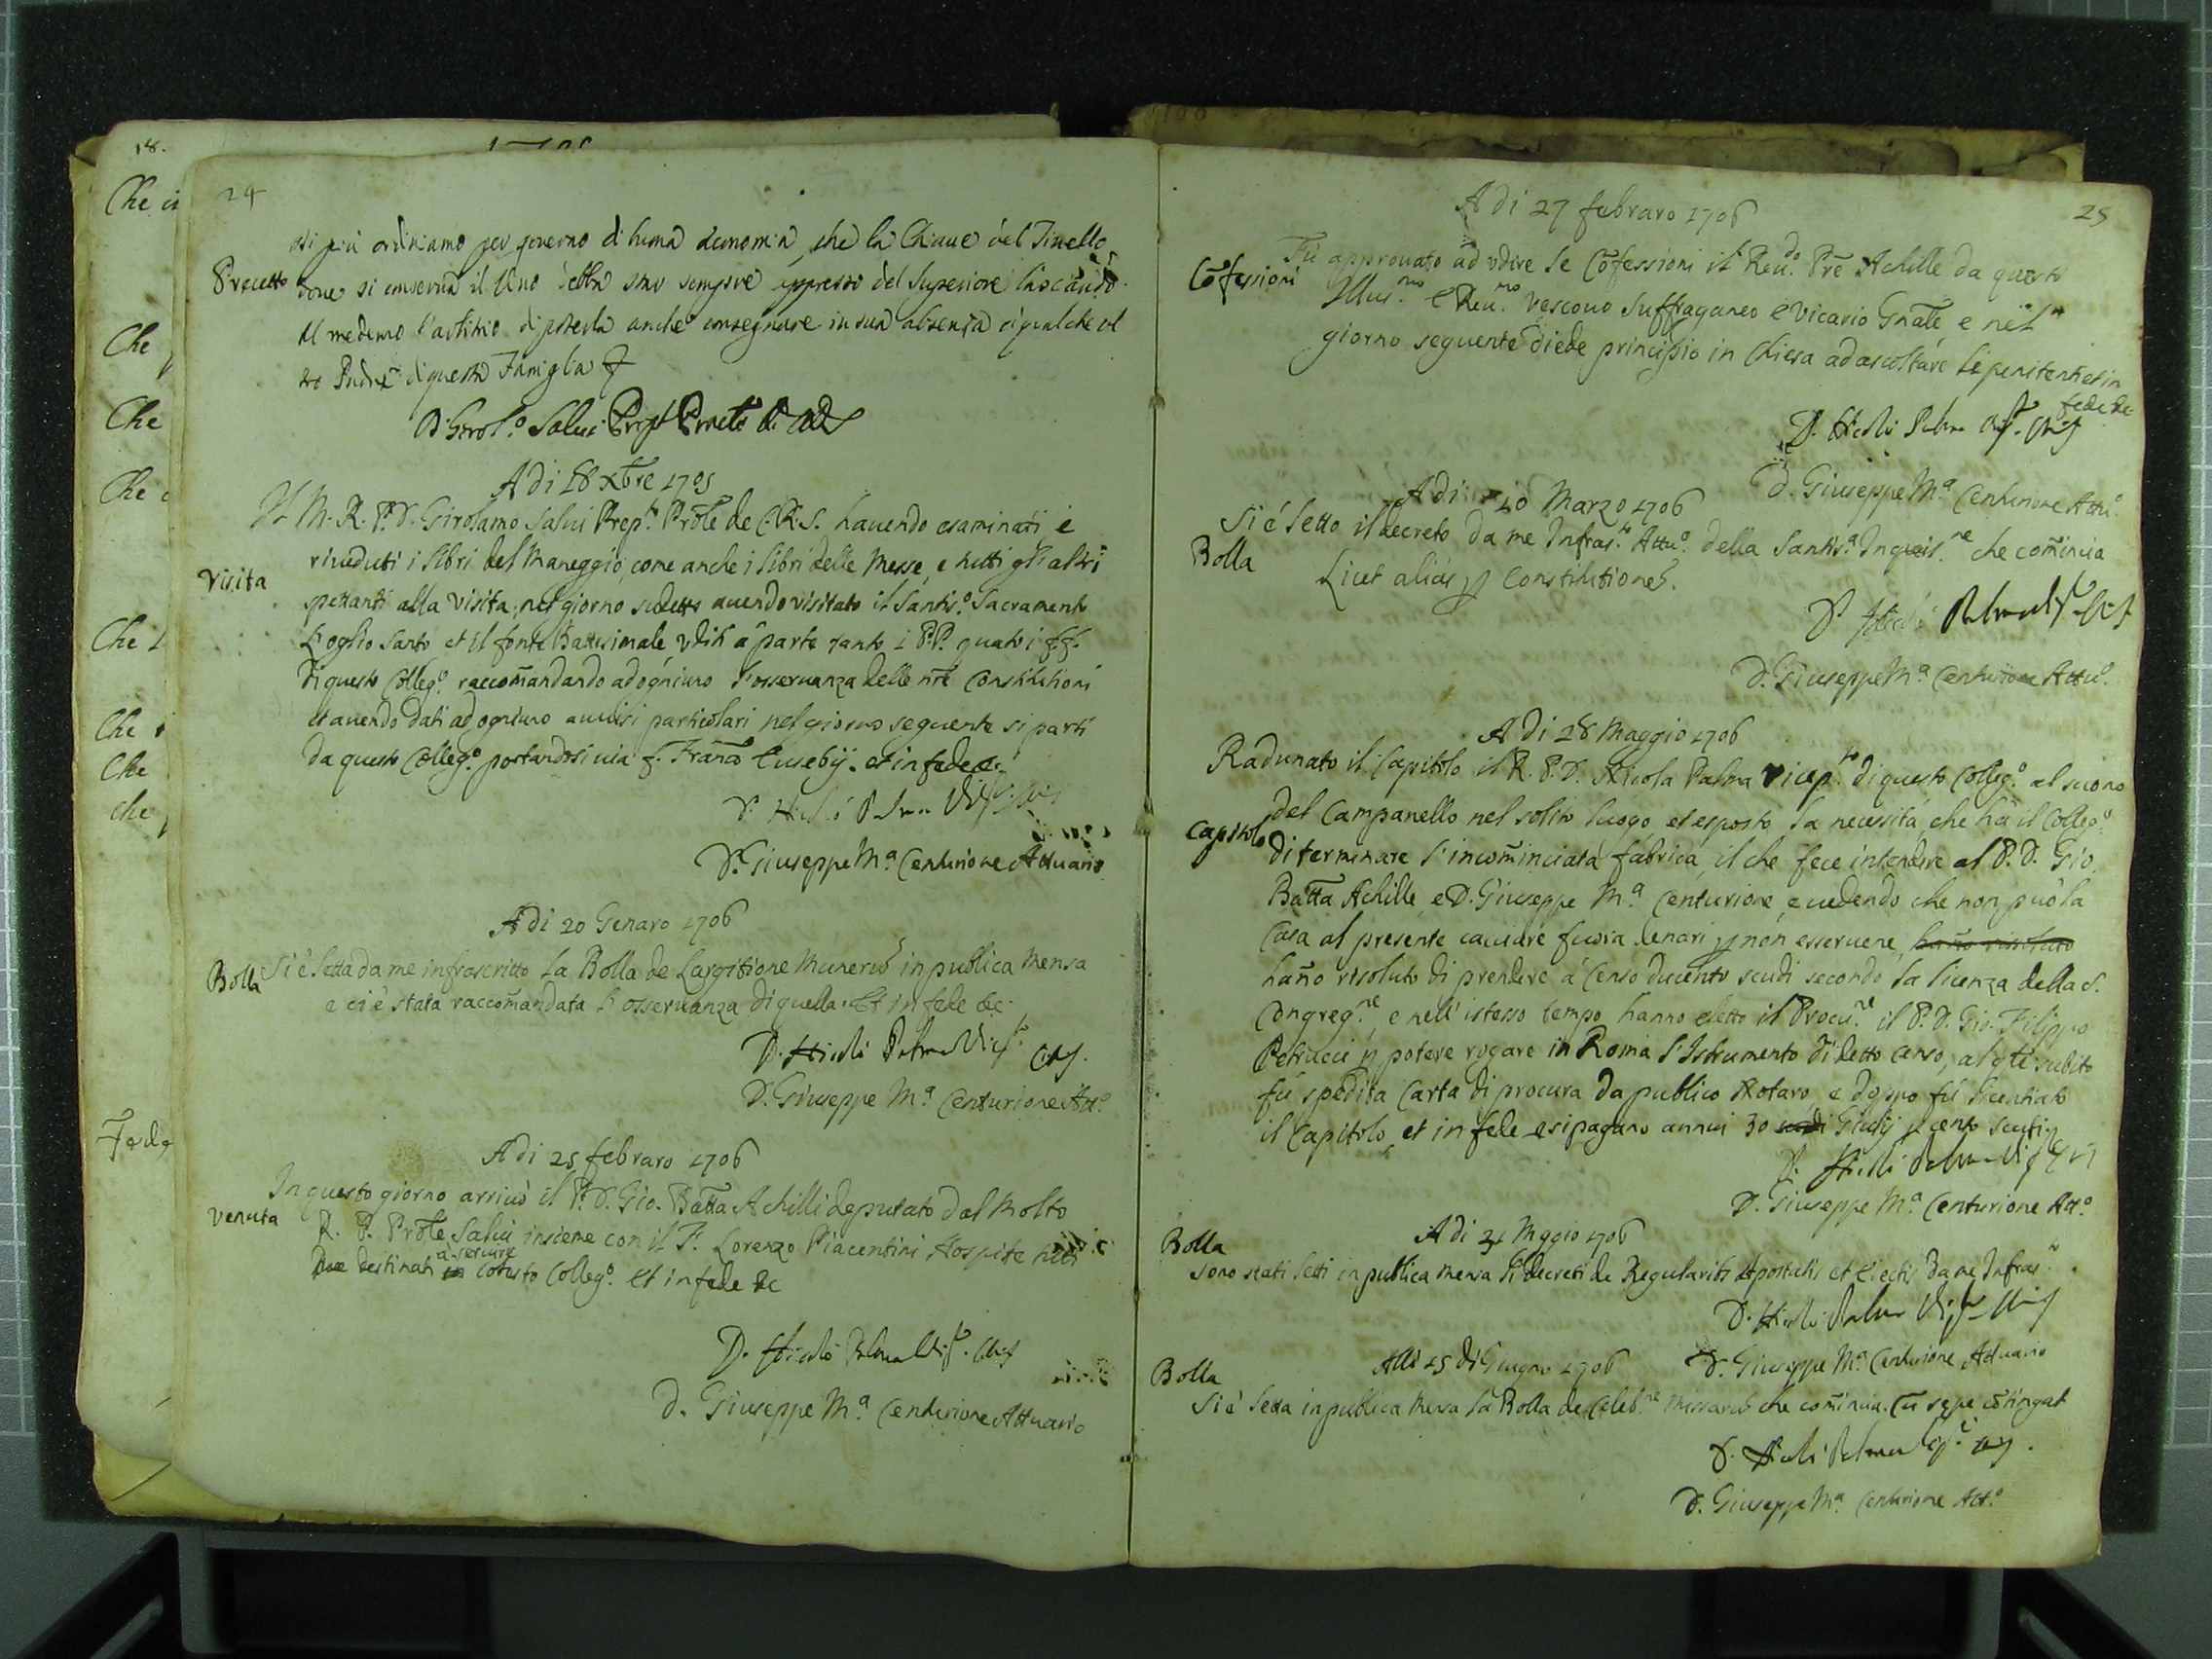 24
di più ordiniamo per governo di buona economia, che la Chiave del Tinello
Precetto dove si conserva il Vino debba star sempre appresso del Superiore lasciando
al medemo l'arbitrio di poterla anche consegnare in sua absenza a qualche al
tro Padre di questa Famiglia
D. Girol.º Salvi Prep.to Prãle
A di 18 Xbre 1705
Il M. R. P. D. Girolamo Salvi Prep.to Prõle de C. R. S. havendo esaminati e
riveduti i libri del Maneggio, come anche i libri delle Messe, e tutti gli altri
Visita
spettanti alla Visita, nel giorno sudetto avendo visitato il Santis.º Sacramento
L'oglio Santo et il fonte Battesimale udità á parte tanto i P.P. quanto i f.f.
di questo Colleg.º raccom̃andando ad ogniuno l'osservanza delle nr̃e Constitutioni
et avendo dati ad ogniuno avvisi particolari nel giorno seguente si partì
da questo Colleg.º portandosi via f. Franc̃o Eusebij. et in fede &c.
D. Nicolò Palma
D. Giuseppe M.ª Centurione Attuario
A di 20 Genaro 1706
Bolla Si è letta da me infrascritto la Bolla de Largitione Munerũ in publica Mensa
e ci è stata raccom̃andata l'osservanza di quella. Et in fede &c.
D. Nicolò Palma
D. Giuseppe M.ª Centurione Att.º
A di 25 febraro 1706
In questo giorno arrivò il P. D. Gio. Batt̃a Achilli deputato dal Molto
Venuta R. P. Prõle Salvi insieme con il F. Lorenzo Piacentini Hospite
destinati a servire cotesto Colleg.º Et in fede &c
D. Nicolò Palma
D. Giuseppe M.ª Centurione Attuario
25
A di 27 febraro 1706
Cõfessioni Fù approvato ad udire le Cõfessioni il Reu.do Prẽ Achille da questo
Illus.mo e Reu.mo Vescovo Suffraganeo e Vicario Gñale e nel
giorno seguente diede principio in Chiesa ad ascoltare li penitenti et in
fede &c
D. Nicolò Palma
D. Giuseppe M.ª Centurione Attu.º
A di 10 Marzo 1706
Si è letto il decreto da me Infras.to Attu.º della Santis.ª Inquis.ne che com̃incia
Bolla Licet alias Constitutiones.
D. Nicolò Palma
D. Giuseppe M.ª Centurione Attu.º
A di 28 Maggio 1706
Radunato il Capitolo il R. P. D. Nicola Palma Vicep.to di questo Colleg.º al suono
del Campanello nel solito luogo et esposto la necessità, che hà il Colleg.º
Capitolo di terminare l'incom̃inciata fabrica, il che fece intendere al P. D. Gio.
Batt̃a Achille, e D. Giuseppe M.ª Centurione, e vedendo che non può la
Casa al presente cacciare fuora denari p non esservene, hañno risoluto
hañno risoluto di prendere á Censo ducento scudi secondo la licenza della S.
Congreg.ne, e nell'istesso tempo hanno eletto il Procu.re il P. D. Gio. Filippo
Petrucci p potere rogare in Roma l'Istrumento di detto Censo, al qle subito
fù spedita Carta di procura da publico Notaro, e doppo fù licentiato
il Capitolo, et in fede e si pagano annui 30 scudi Giulij p cento scudi
D. Nicolò Palma
D. Giuseppe M.ª Centurione Att.º
A di 31 Mggio 1706
Bolla
Sono stati letti in publica Mensa li decreti de Regularitis Apostatis et Eiectis da me Infras.to
D. Nicolò Palma
D. Giuseppe M.ª Centurione Attuario
Alli 15 di Giugno 1706
Bolla
Si è letta in publica Mensa la Bolla de Celeb.ne Missarũ che com̃incia. Cũ sepe cõtingat
D. Nicolò Palma
D. Giuseppe M.ª Centurione Att.º
18.
Che
Che
Che
Che
Che
Che
Che
Che
Fede